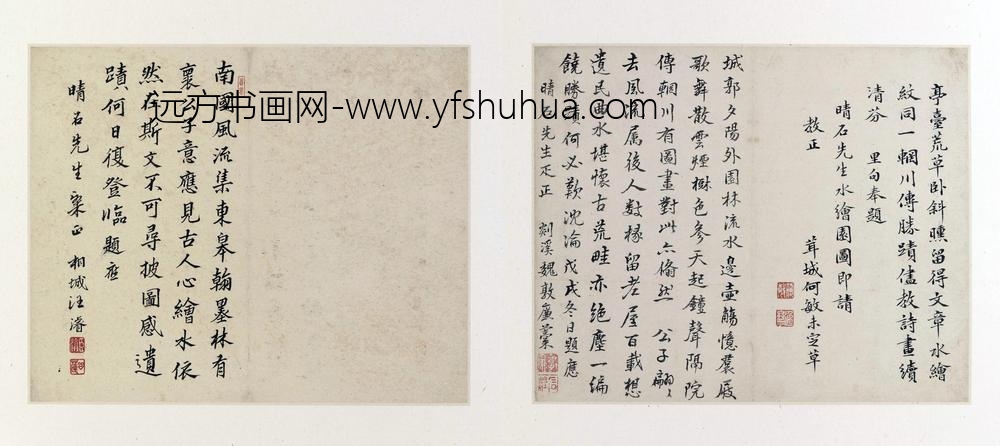 亭臺荒草卧斜曛留得文章水繪
紋同一輞川傳勝蹟儘教詩畫續
清芬 里句奉題
晴石先生水繪園圖即請
教正
茸城何敏未定草
城郭夕陽外園林流水邊壺觴憶羣屐
歌舞散雲煙樹色參天起鐘聲隔院
傳輞川有圖畫對此亦翛然 公子翩々
去風流属後人数椽留老屋百載想
遺民曲水堪懷古荒畦亦絶塵一编
饒勝蹟何必歎沈淪戊戌冬日題應
晴石先生疋正 剡溪魏敦廉藁
南國風流集東皋翰墨林有
襄公子意應見古人心繪水依
然在斯文不可尋披圖感遺
蹟何日復登臨題应
晴石先生粢正 桐城汪濬
远方书画网-www.yfshuhua.com